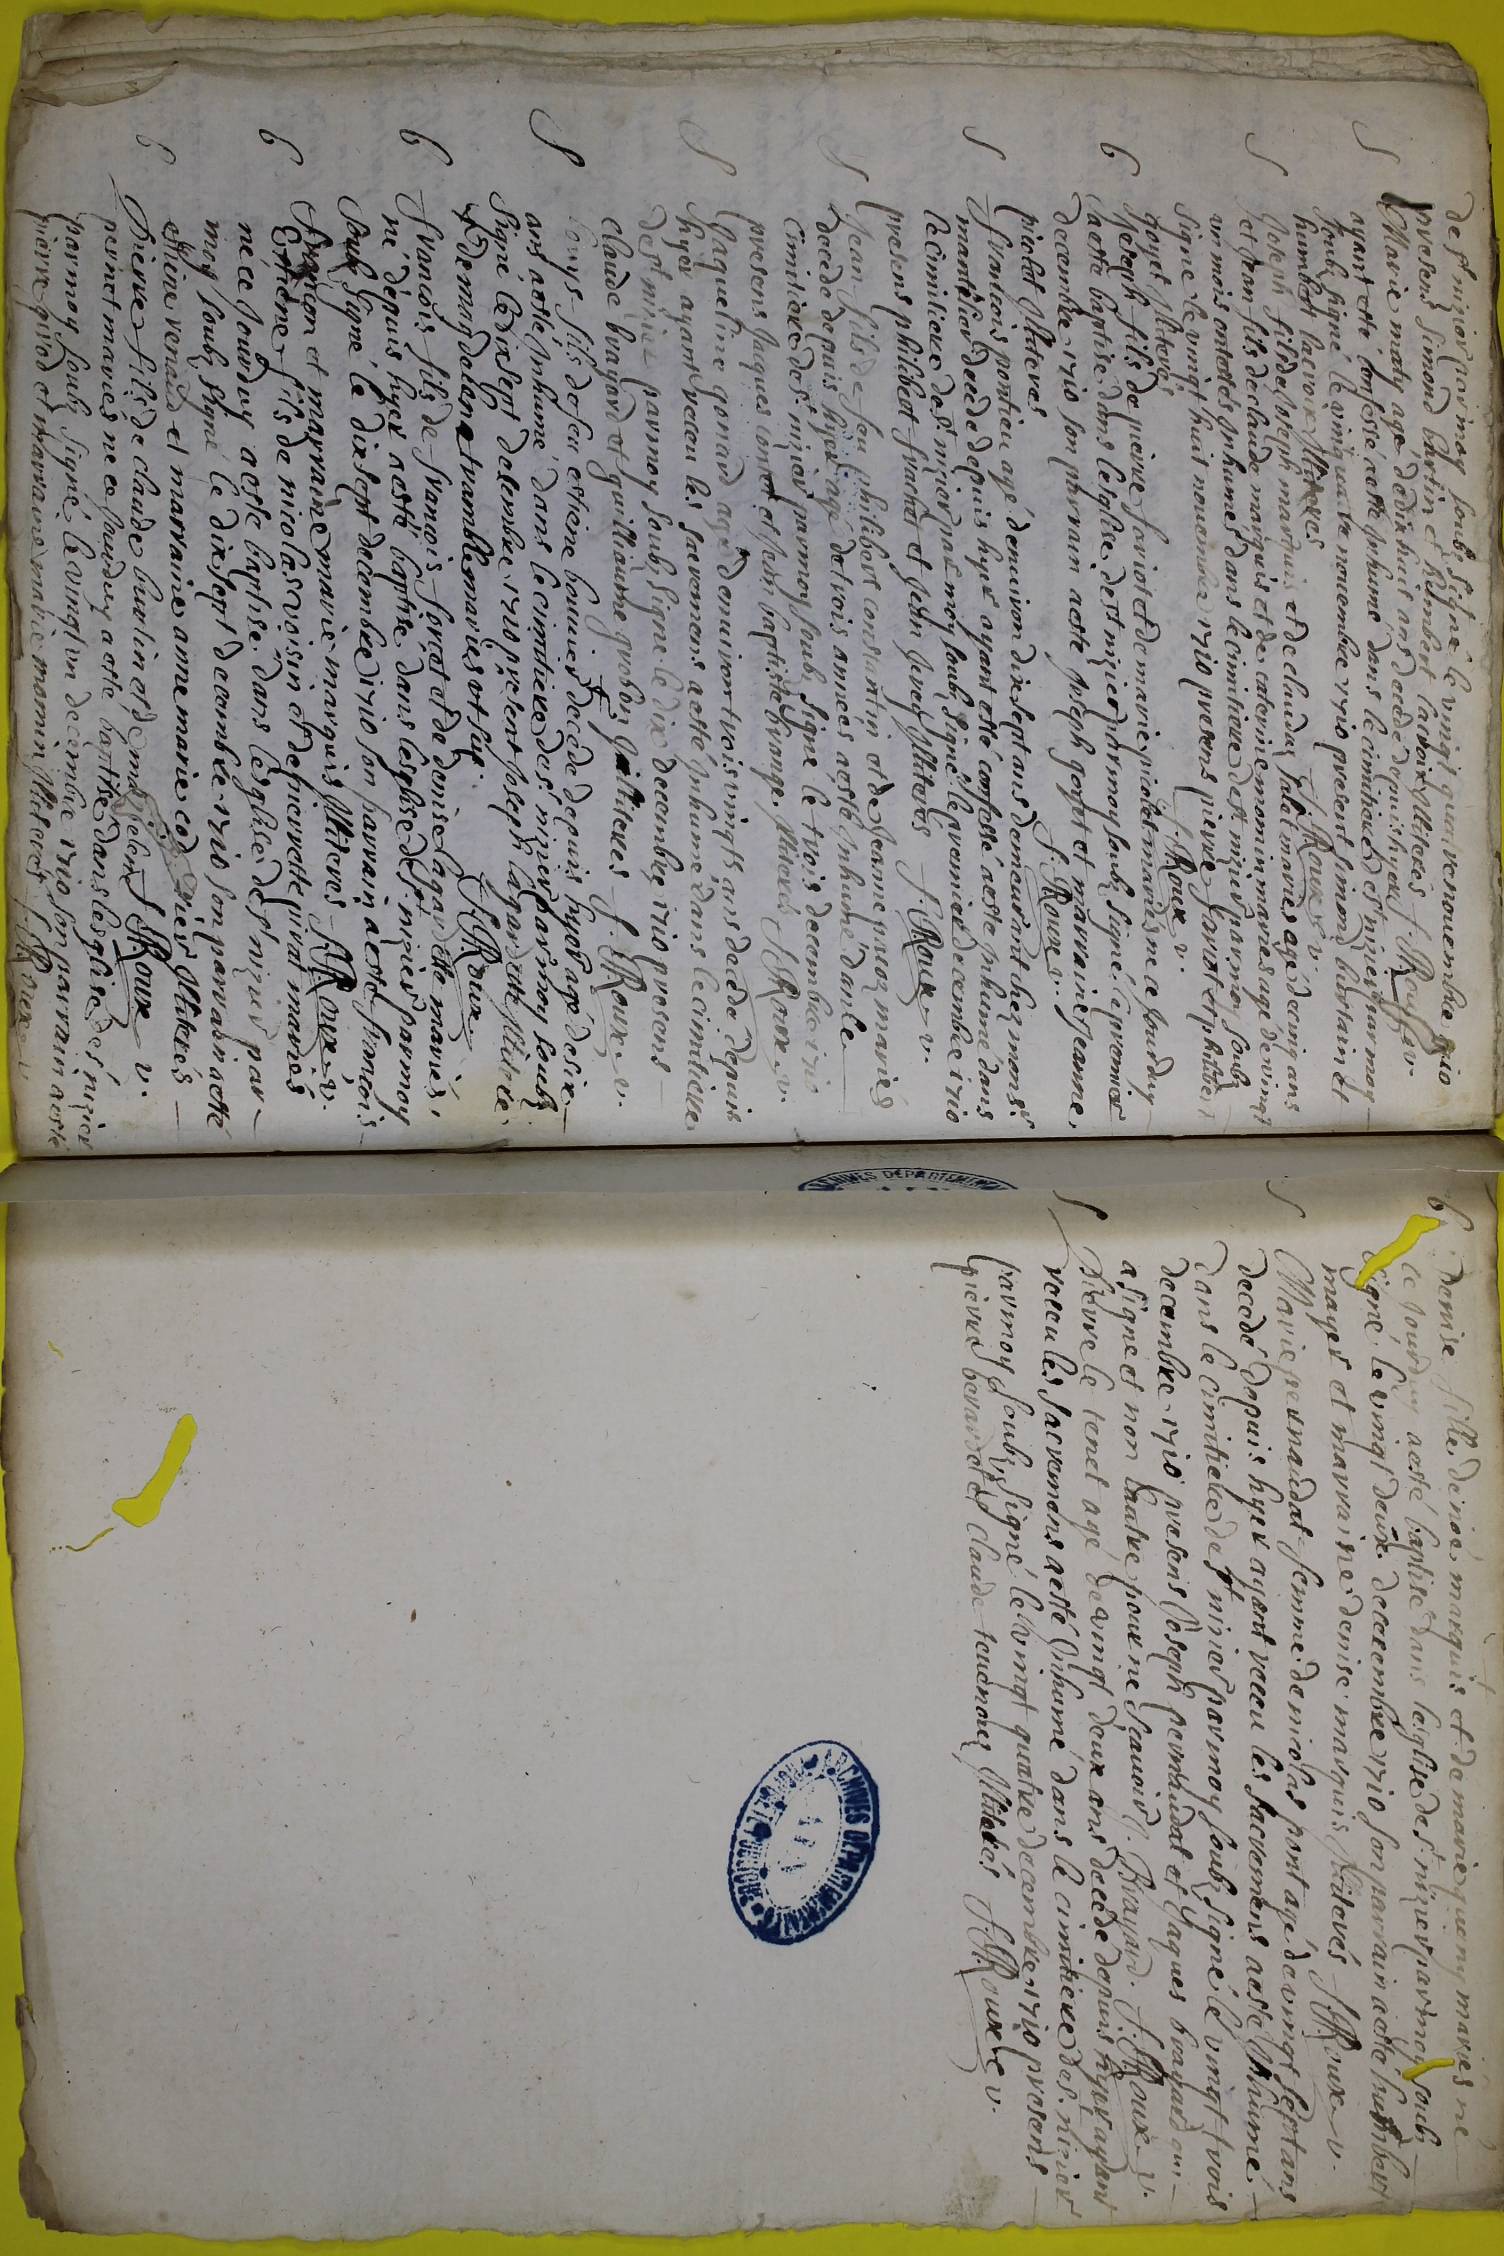 de st nizier par moy soubsigné le vingt quatre novembre 1710
presens simond burtin et humbert lacroix illiterés J. Roux v.
S Marie maty agé de dix huit ans decede depuis hyer
ayant esté confessé a esté inhumé dans le cimitiere de st nizier par moy
soubsigné le vingt quatre novembre 1710 present simond burtain et
humbert lacroix illiterés J. Roux v.
S Joseph fils de Joseph marquis et de claude mariés agé de cinq ans
et Jean fils de claude marquis et de caterine monnin mariés agé de vingt
un mois ont estés inhumés dans le cimitiere de st nizier par moy soub
signé le vingt huit novembre 1710 presens pierre favrot et philibert
goyet illiterés J. Roux v.
b Joseph fils de pierre favrot et de marie piolat mariés né ce jourduy
a esté baptisé dans lesglise de st nizier par moy soubsigné le premier
decembre 1710 son parrain a esté Joseph goyet et marraine Jeanne
piolat illiteres J. Roux v.
S Francois pontieu agé denviron dix sept ans demeurant chez monsr
decede depuis hyer ayant esté confessé a esté inhumé dans
le cimitiere de st nizier par moy soubsigné le premier decembre 1710
presens philibert et Jean illiteres J. Roux v.
S Jean fils de feu philibert constantin et de Jeanne mariés
decede depuis hyer agé de trois années a esté inhumé dans le
cimitiere de st nizier par moy soubsigné le trois decembre 1710
presens Jaques contet et Jean baptiste brange illiterés J. Roux v.
S Jaqueline gonard agé denviron trois vingts ans decede depuis
hyer ayant receu les sacremens a esté inhumé dans le cimitiere
de st nizier par moy soubsigné le dix decembre 1710 presens
claude brayard et guilliaume grobon illiteres J. Roux v.
S Louys fils de feu estiene bouvier decede depuis hyer agé de six
ans a esté inhumé dans le cimitiere de st nizier par moy soub
signé le dix sept decembre 1710 present Joseph lagardette illitere
et de magdalene tramble mariés J. Roux
b Francois fils de francois forat et de denise lagardette mariés
né depuis hyer a esté baptisé dans lesglise de st nizier par moy
soubsigné le dix sept decembre 1710 son parrain a esté francois
et marraine marie marquis illiteres J. Roux v.
b Estiene fils de nicolas voisin et de pierrette pivat mariés
né ce jourduy a esté baptisé dans lesglise de st nizier par
moy soubsigné le dix sept decembre 1710 son parrain a esté
estiene renaud et marraine anne marie illiterés
J. Roux v.
b Pierre fils de claude burtin et de
pernet mariés né ce jourduy a esté baptisé dans lesglise de st nizier
par moy soubsigné le vingt un decembre 1710 son parrain a esté
pierre pivod et marraine marie monnin illiterés J. Roux v.
b Denise fille de noé marquis et de marie mariés né
ce jourduy a esté baptisé dans lesglise de st nizier par moy soub
signé le vingt deux decembre 1710 son parrain a esté humbert
mayet et marraine denise marquis illiterés J. Roux v.
S Marie pernaudat femme de nicolas pont agé de vingt sept ans
decedé depuis hyer ayant receu les sacremens a esté inhumé
dans le cimitiere de st nizier par moy soubsigné le vingt trois
decembre 1710 presens Joseph pernaudat et Jaques brayard qui
a signé et non lautre pour ne scavoir J. Brayard. J. Roux v.
S Pierre le tenet agé de vingt deux ans decede depuis hyer ayant
receu les sacremens a esté inhumé dans le cimitiere de st nizier
par moy soubsigné le vingt quatre decembre 1710 presens
pierre berardet et claude illiterés J. Roux v.
ARCHIVES DEPARTEMENTALES